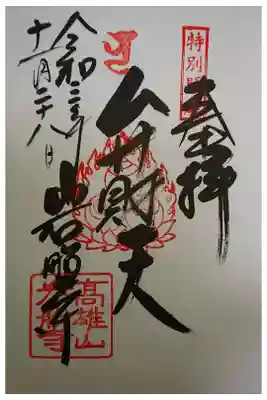 特別
奉拝
弁財天
令和三年
十一月二十八日
岩船寺
高雄山
岩船寺